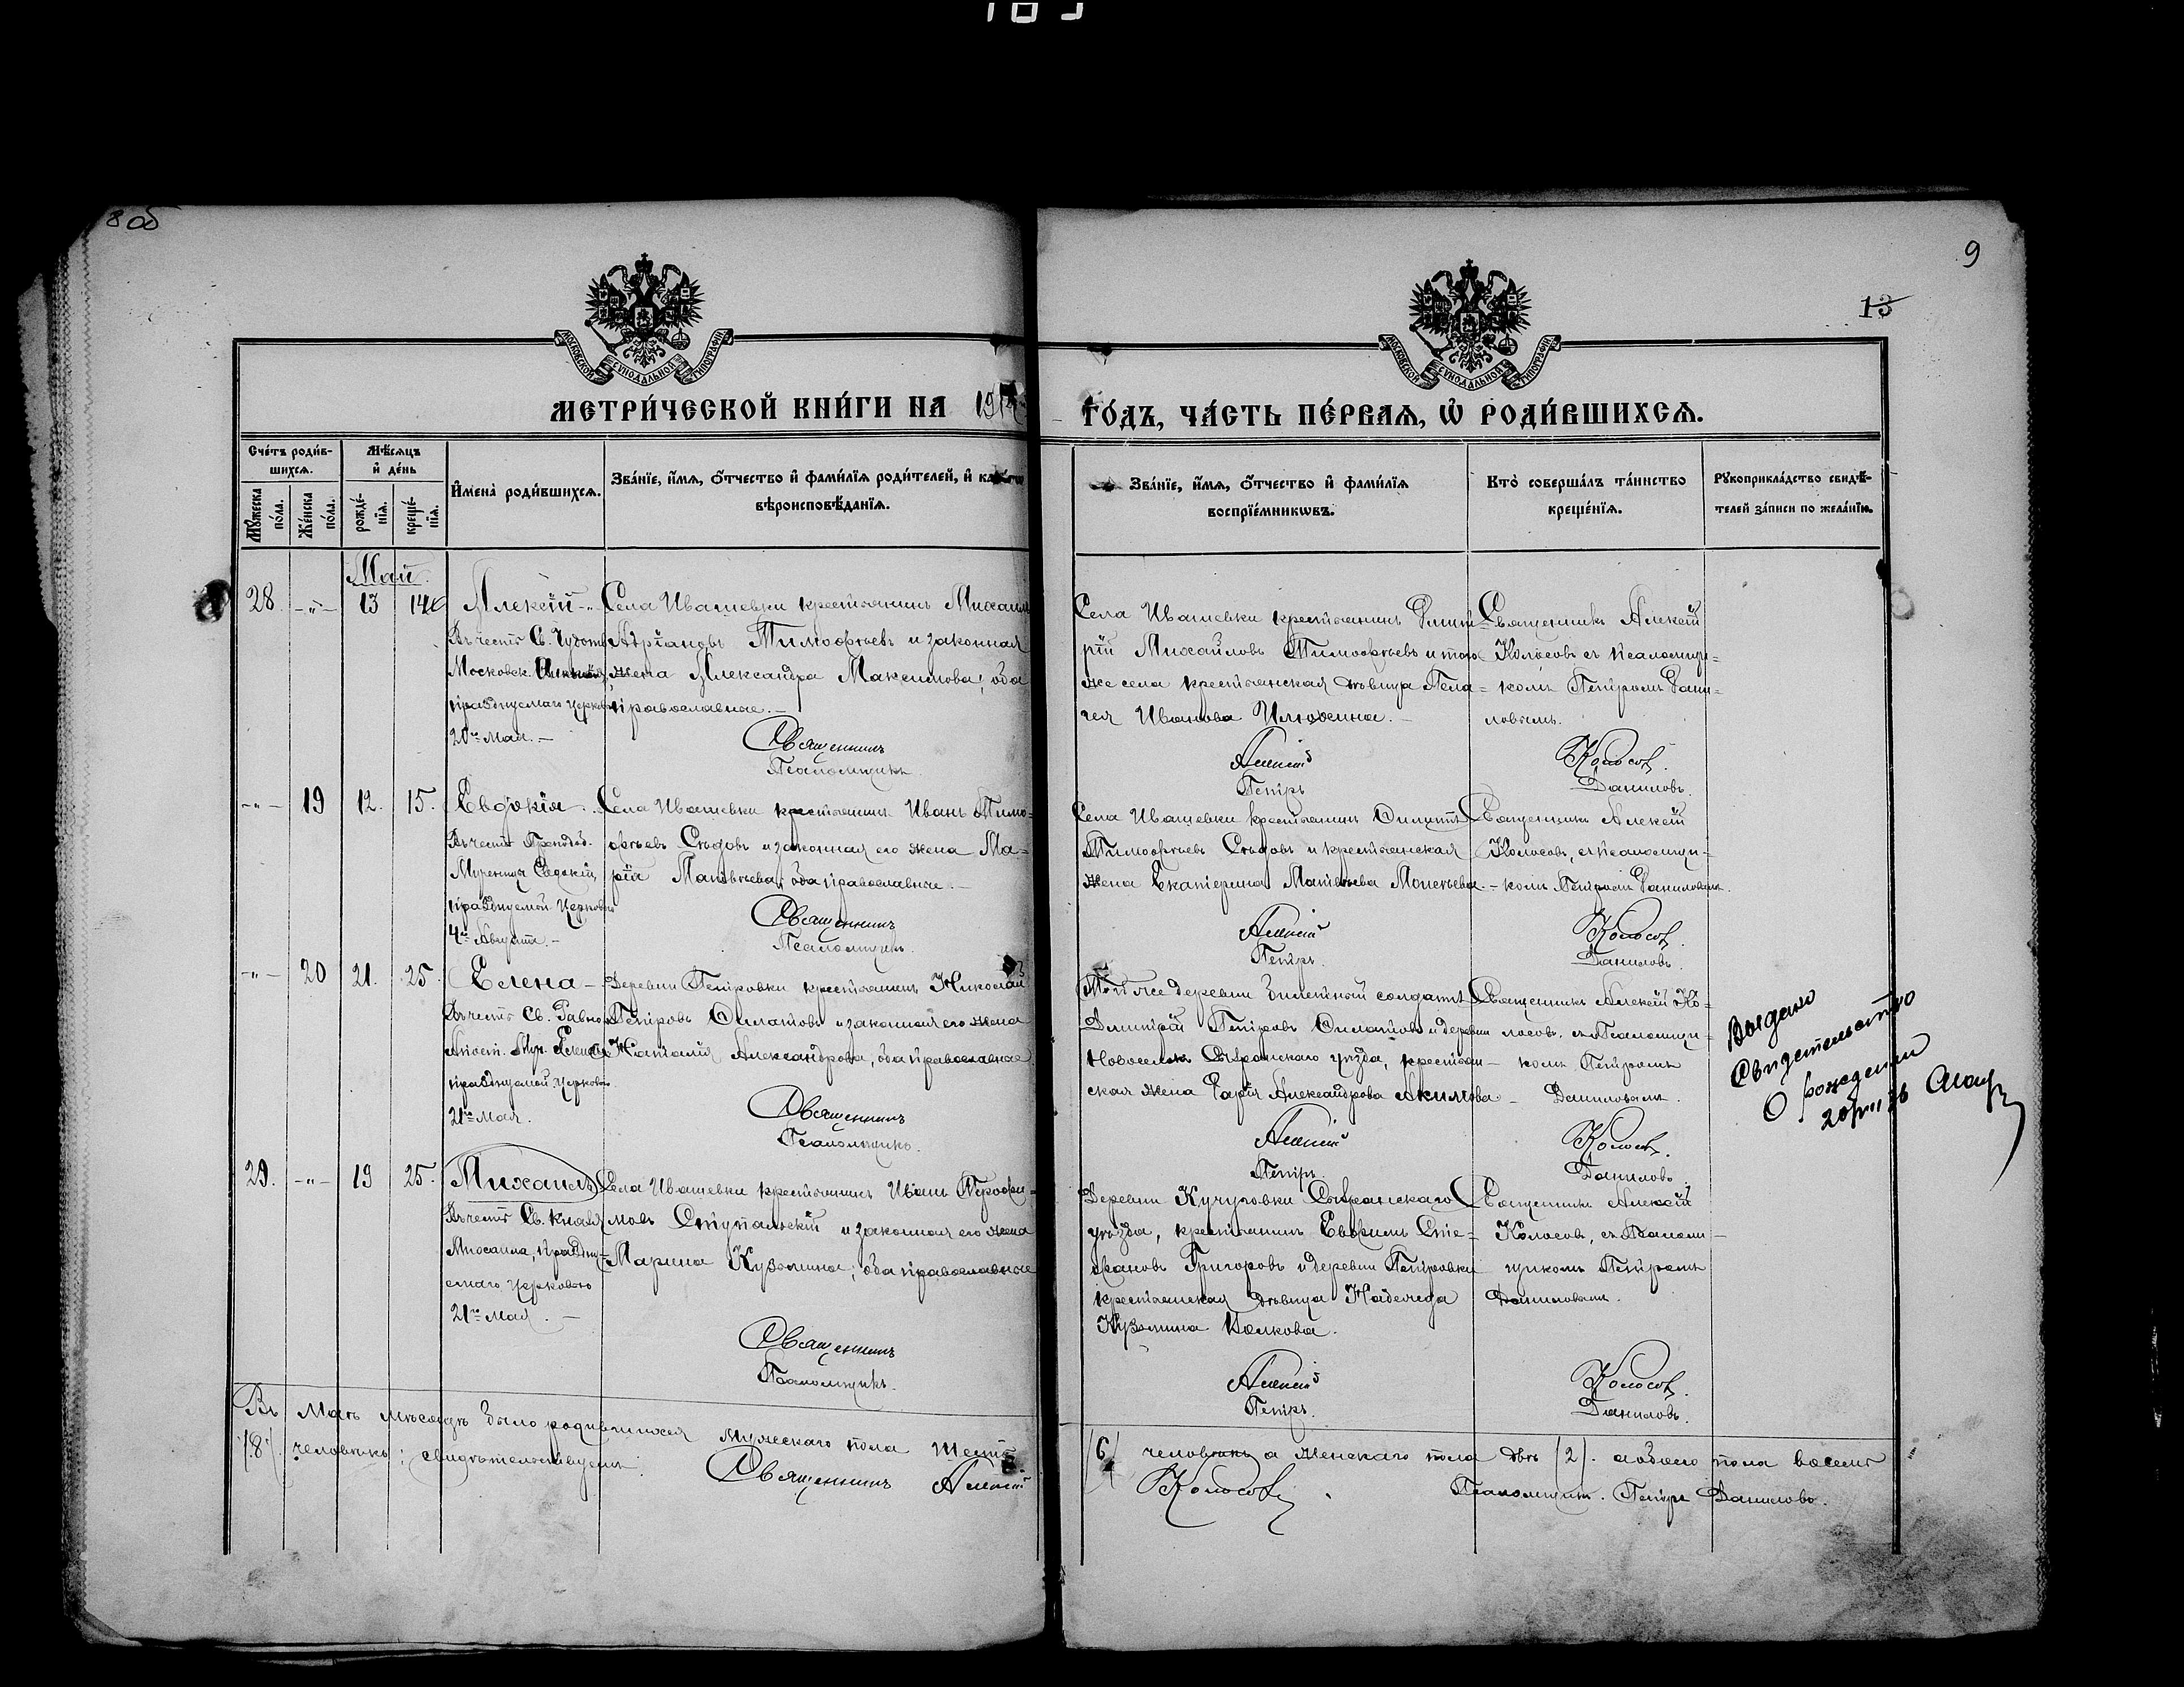 8 об
9
13
МЕТРИ́ЧЕСКОЙ КНИ́ГИ НА 191
ГО́ДЪ, ЧА́СТЬ ПЕ́РВАЯ, Ѡ РОДИ́ВШИХСЯ.
Сче́тъ роди́в-
шихся.
Мѣ́сяцъ
и де́нь
Мꙋ́жеска
по́ла.
Же́нска
по́ла.
рожде́-
нїя.
креще́-
нїя.
Имена̀ роди́вшихся.
Зва́нїе, и́мя, ѻ҆́тчество и фами́лїя роди́телей, и
вѣроисповѣ́данїя.
Зва́нїе, и́мя, ѻ҆́тчество и фами́лїя
воспрїе́мникѡвъ.
Кто̀ соверша́лъ та́инство
креще́нїя.
Рꙋкоприкла́дство свидѣ́-
телей за́писи по жела́нїю.
Май.
28 -"- 13 14
Алексій -"-
Въ честь Св. Чудотв.
Московск. Алексія,
празднуемаго Церковію
20го Мая. —
Села Ивашевки крестьянинъ Михаилъ
Адріановъ Тимофѣевъ и законная
жена Александра Максимова; оба
православные. —
Священникъ
Псаломщикъ
Села Ивашевки крестьянинъ Димит-
рій Михайловъ Тимофѣевъ и того
же села крестьянская дѣвица Пела-
гея Иванова Илюхина. —
Алексій
Петръ
Священникъ Алексій
Колосовъ съ псаломщи-
комъ Петромъ Дани-
ловымъ.
Колосовъ.
Даниловъ.
-"- 19 12. 15.
Евдокія.
Въ честь Преподоб.
Мученицы Евдокіи,
празднуемой Церковію
4го Августа. —
Села Ивашевки крестьянинъ Иванъ Тимо-
фѣевъ Сѣдовъ и законная его жена Ма-
рія Матвѣева; оба православные. —
Священникъ
Псаломщикъ.
Села Ивашевки крестьянинъ Филиппъ
Тимофѣевъ Сѣдовъ и крестьянская
жена Екатерина Матвѣева —
Алексій
Петръ.
Священникъ Алексій
Колосовъ, съ псаломщи-
комъ Петромъ Даниловымъ.
Колосовъ.
Даниловъ.
-"- 20 21. 25.
Елена —
Въ честь Св. Равно-
Апост. Елены
празднуемой Церковію
21го Мая.
Деревни Петровки крестьянинъ Николай
Петровъ Филатовъ и законная его жена
Наталія Александрова, оба православные
Священникъ
Псаломщикъ.
Той же деревни солдатъ
Димитрій Петровъ Филатовъ и деревни
Новоселокъ Сызранскаго уѣзда, крестьян-
ская жена Дарія Александрова Акимова
Алексій
Петръ
Священникъ Алексій Ко-
лосовъ, съ Псаломщи-
комъ Петромъ
Даниловымъ.
Колосовъ.
Даниловъ.
Выдано
Свидетельство
О рождении
29. -"- 19 25.
Михаилъ
Въ честь Св. Князя
Михаила, праздну-
емаго Церковію
21го Мая. —
Села Ивашевки крестьянинъ Иванъ
мовъ Ступальскій и законная его жена
Марина Кузьмина; оба православные
Священникъ
Псаломщикъ.
Деревни Кучуговки Сызранскаго
уѣзда, крестьянинъ Евфимъ Сте-
фановъ Григоровъ и деревни Петровки
крестьянская дѣвица Надежда
Кузьмина Волкова.
Алексій
Петръ.
Священникъ Алексій
Колосовъ, съ Псалом-
щикомъ Петромъ
Даниловымъ.
Колосовъ.
Даниловъ.
Въ Маѣ мѣсяцѣ было родившихся мужескаго пола шесть (6) человѣкъ а женскаго пола двѣ (2). а обоего пола восемь
(8). человѣкъ; свидѣтельствуемъ: Священникъ Алексій Колосовъ. Псаломщикъ. Петръ Даниловъ.